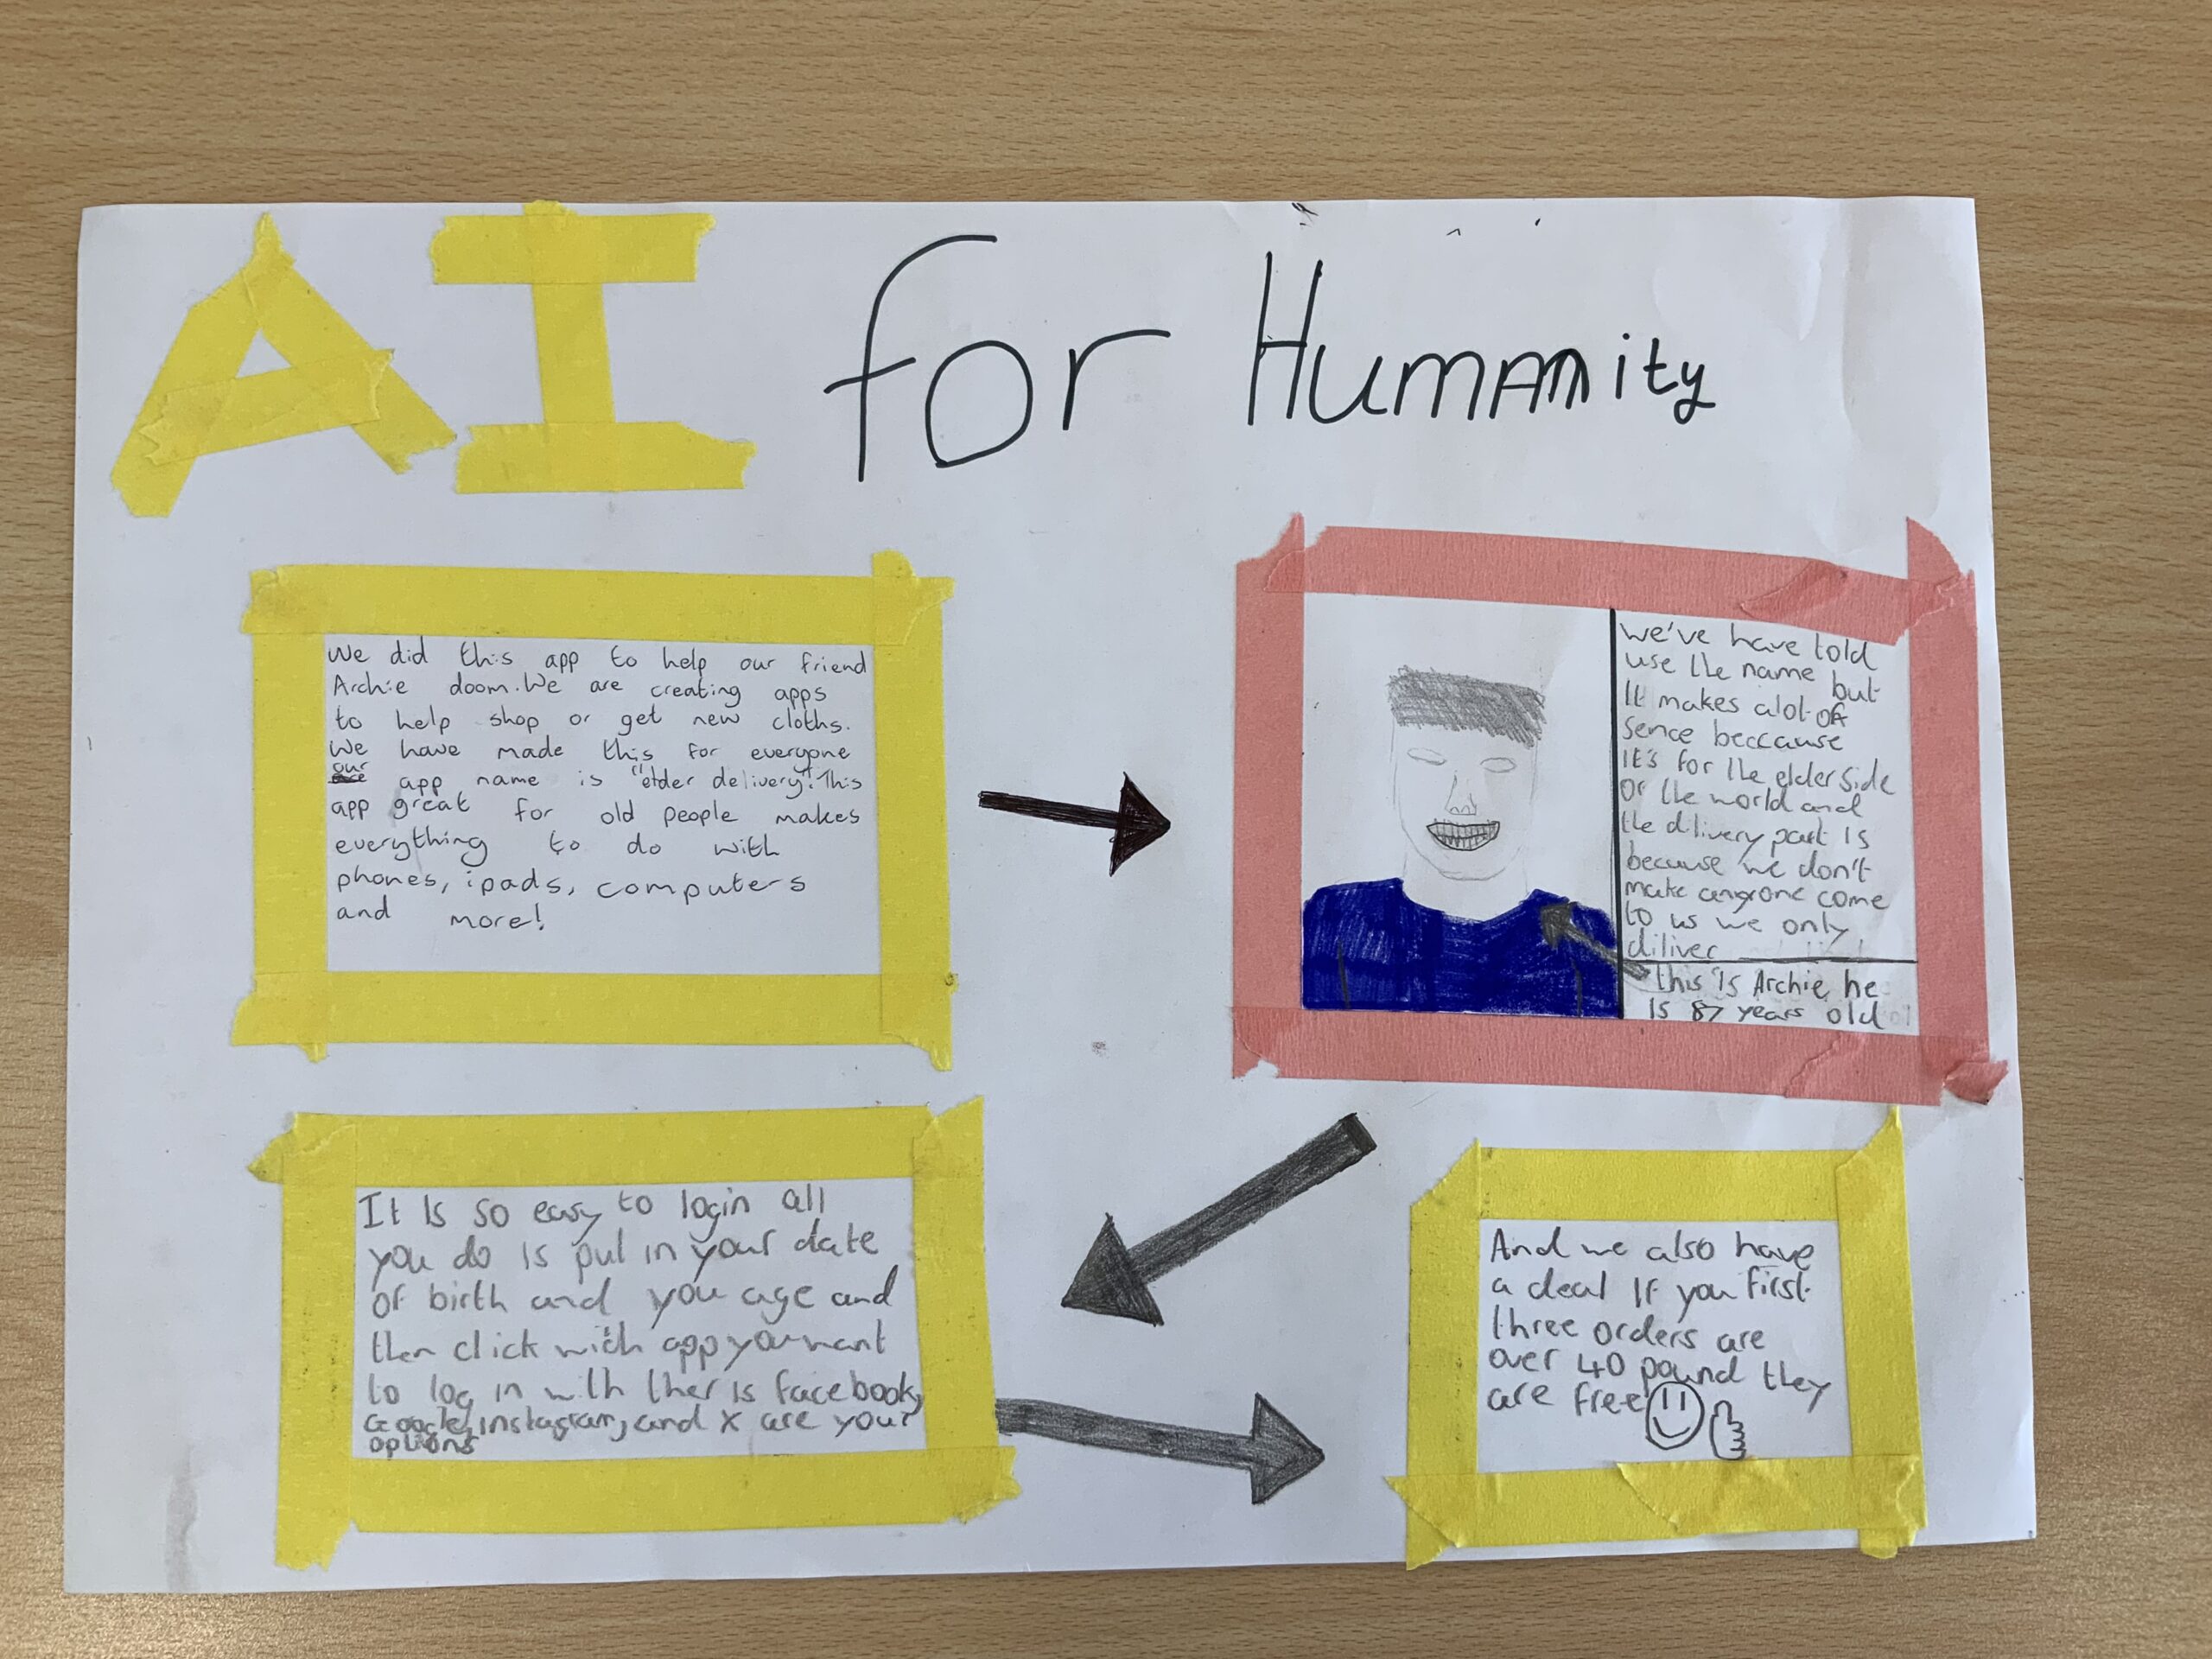 AI for Humanity
We did this app to help our friend
Archie doom. We are creating apps
to help shop or get new cloths.
We have made this for everyone
our app name is "elder delivery". This
app great for old people makes
everything to do with
phones, ipads, computers
and more!
we've have told
use the name but
It makes alot of
sence beccause
it's for the elder side
of the world and
the dilivery part is
because we don't
make anyone come
to us we only
diliver
this is Archie he
is 87 years old
It is so easy to login all
you do is put in your date
of birth and you age and
then click wich app you want
to log in with ther is facebook,
Google, instagram, and X are your
options
And we also have
a deal If you first
three orders are
over 40 pound they
are free